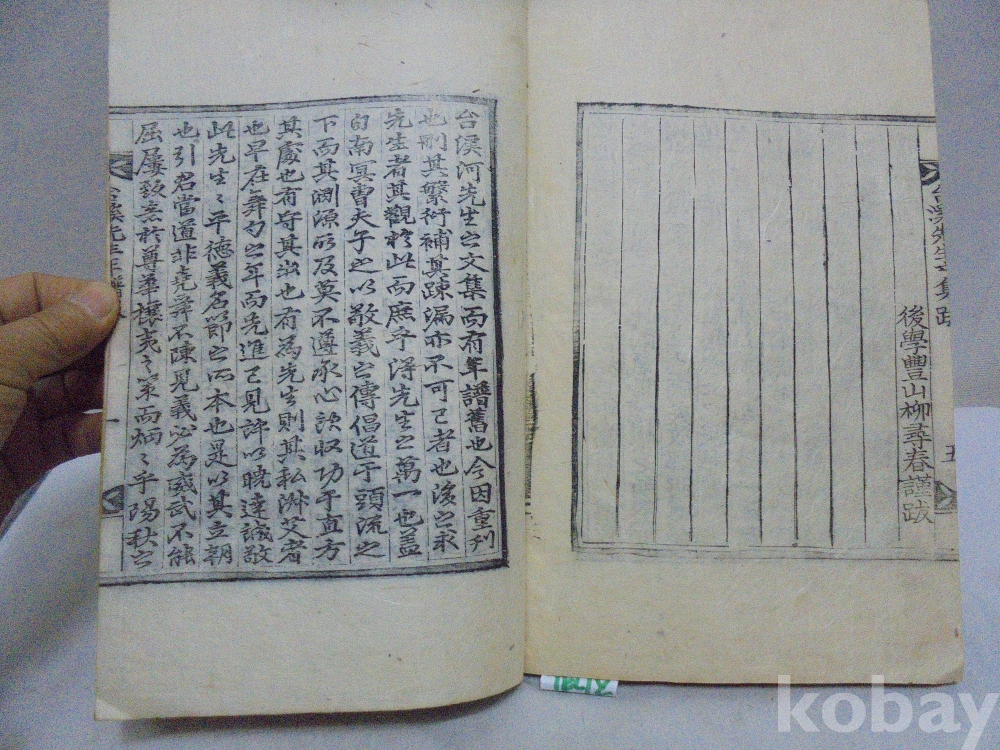 台溪先生文集跋
五
後學豐山柳尋春謹跋
台溪河先生之文集而有年譜舊也今因重刊
也刪其繁衍補其踈漏亦不可已者也後之求
先生者其觀於此而庶乎得先生之萬一也盖
自南冥曹夫子之以敬義之傳倡道于頭流之
下而其淵源所及莫不遵承心欽收功于直方
其處也有守其出也有為先生則其私淑艾者
也早在舞勺之年而先進已見許以曉達誠敬
此先生之平德義名節之所本也是以其立朝
也引君當道非堯舜不陳見義必為威武不能
屈屢致意於尊華攘夷之案而炳炳乎陽秋之
台溪先生年譜
一
kobay